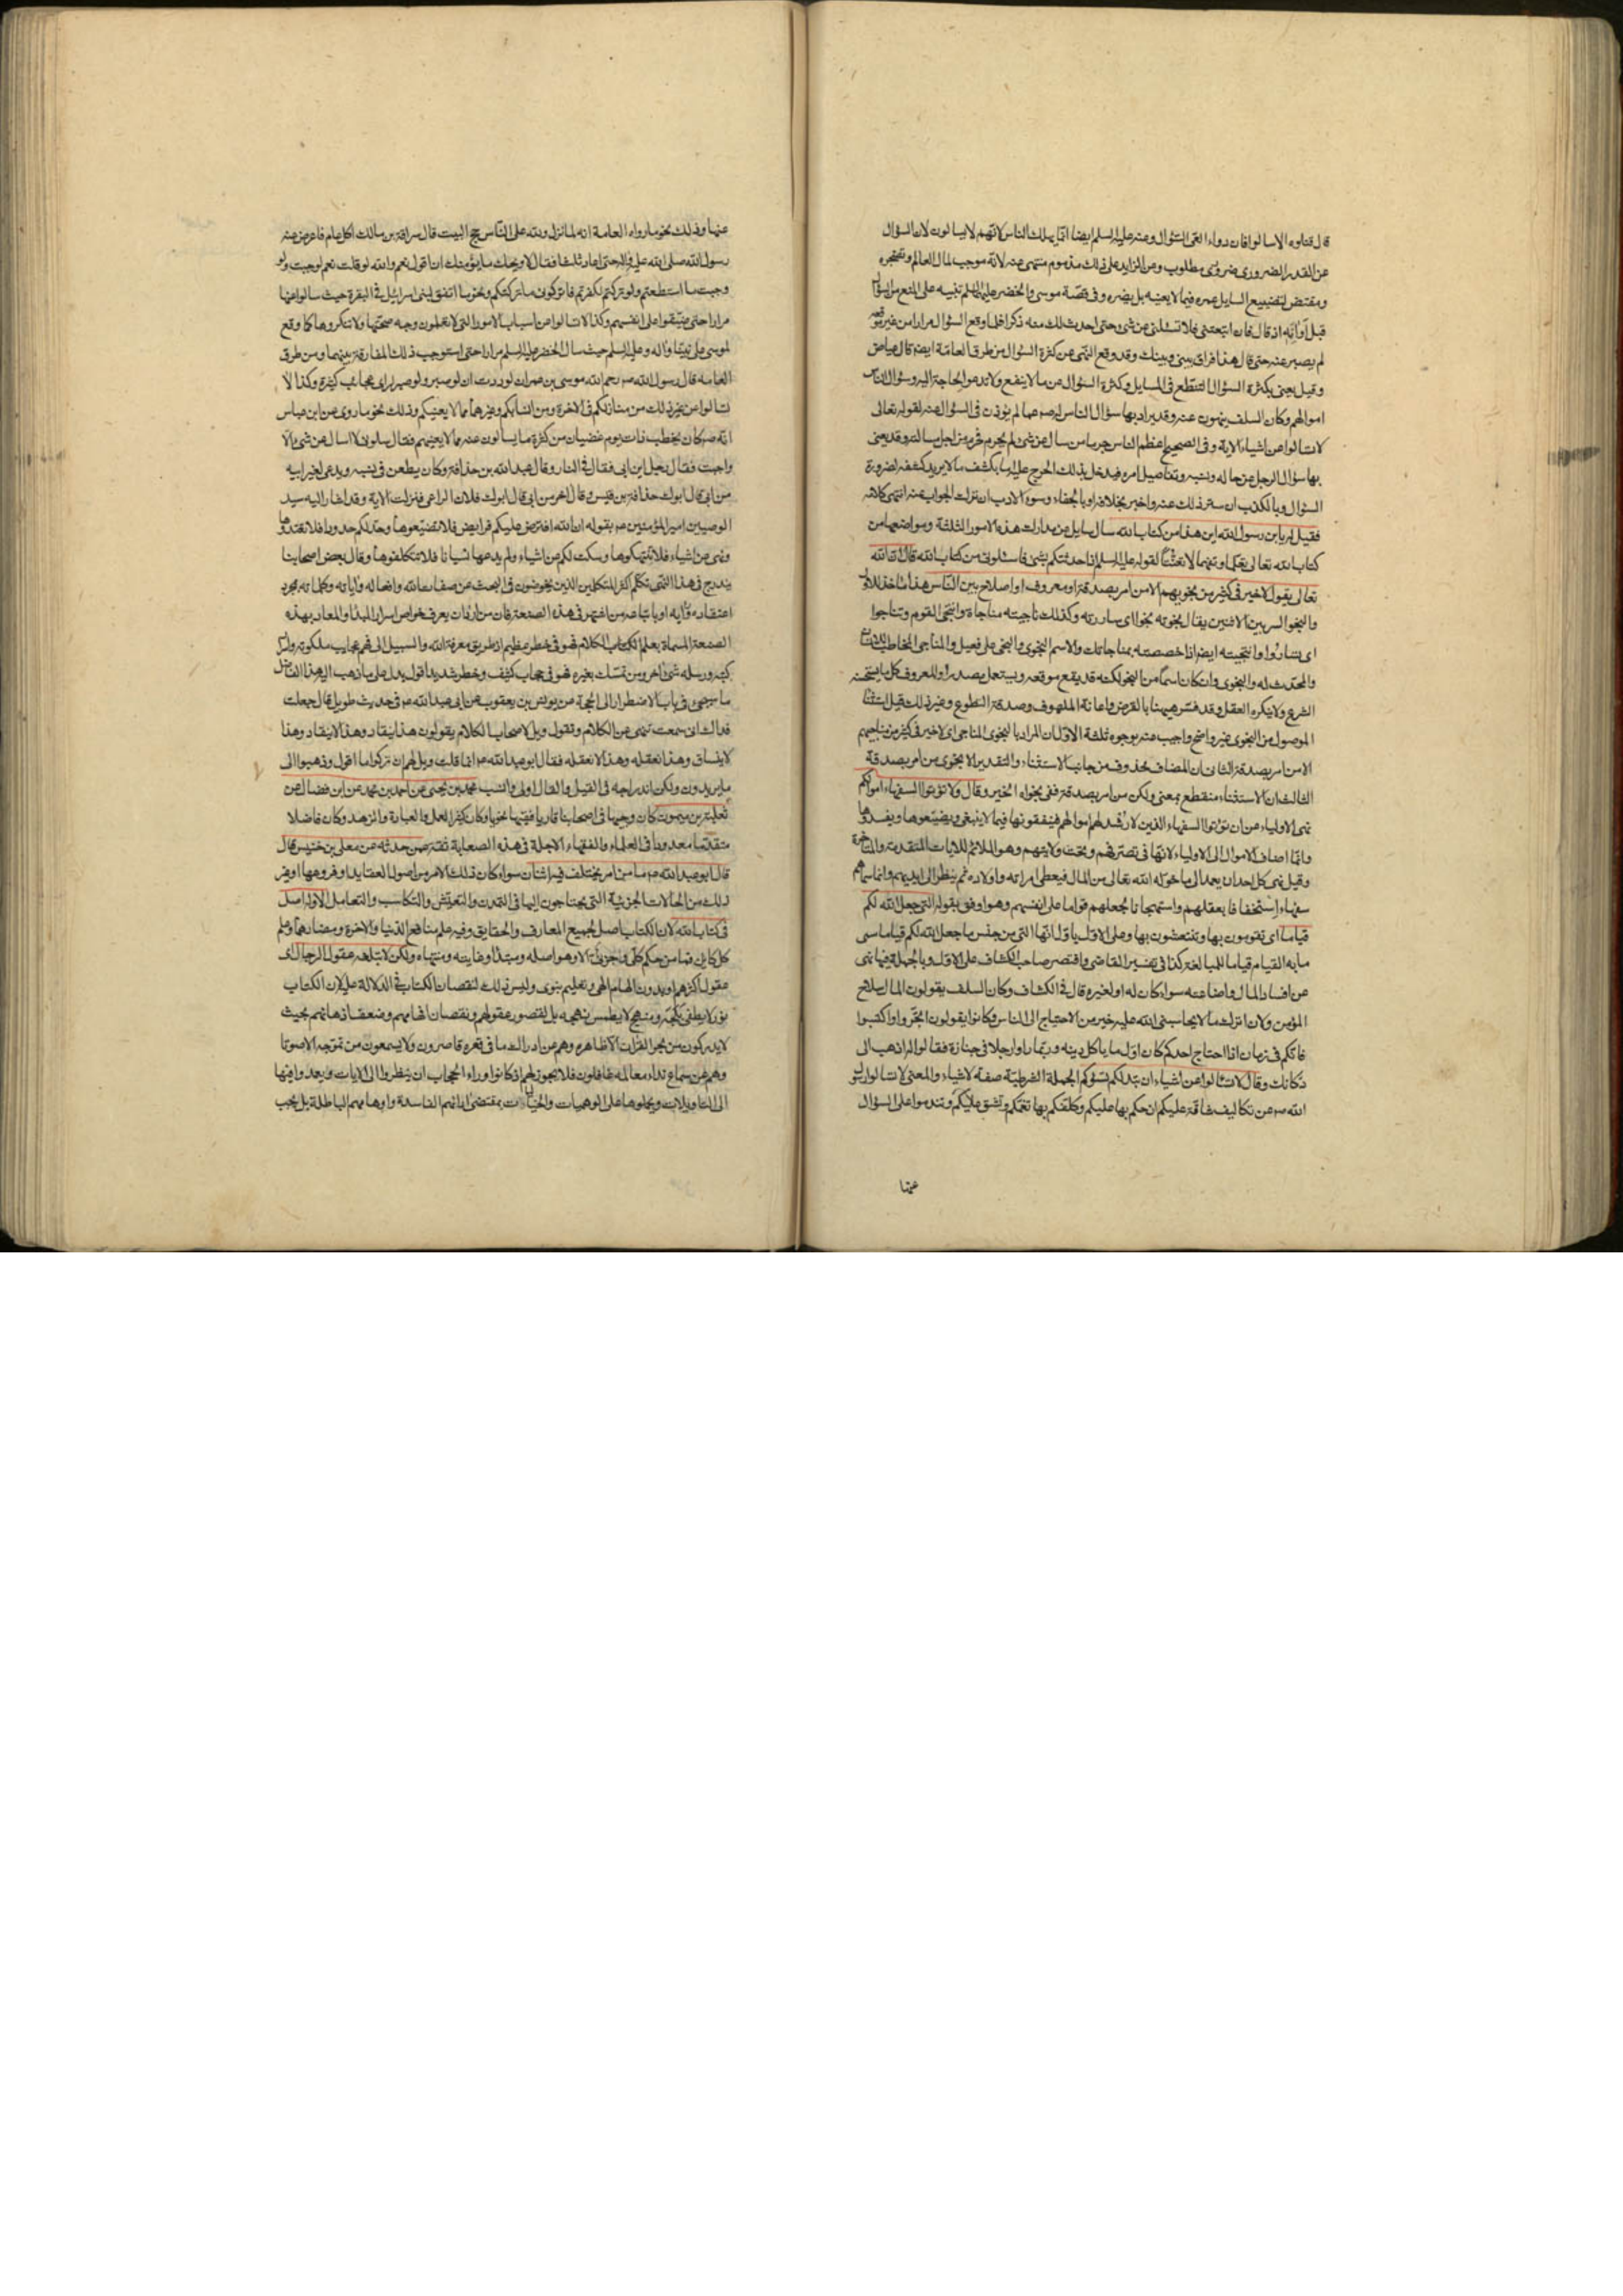 قال قتلوه الا سالوا فان دواء العی السؤال وعنه علیه السلم ایضا انما یهلك الناس لانهم لا یسالون لان السؤال
عن القدر الضروری ضروری مطلوب وعن الزاید علی ذلك مذموم منهی عنه لانه موجب لملال العالم وتضجره
ومقتض لتضییع السایل عمره فیما لا یعنیه بل یضره وفی قصة موسی والخضر علیهما السلم تنبیه علی المنع من السؤال
قبل اوانه اذ قال فان اتبعتنی فلا تسئلنی عن شئ حتی احدث لك منه ذکرا فلما وقع السؤال مرارا من غیر موقعه
لم یصبر عنه حتی قال هذا فراق بینی وبینك وقد وقع النهی عن کثرة السؤال من طرق العامة ایضا قال عیاض
وقیل یعنی بکثرة السؤال التنطع فی المسایل وکثرة السؤال عن ما لا ینفع ولا تدعو الحاجة الیه وسؤال الناس
اموالهم وکان السلف ینهون عنه وقد یراد بها سؤال الناس له ص عما لم یؤذن فی السؤال عنه لقوله تعالی
لا تسالوا عن اشیاء الایة وفی الصحیح اعظم الناس جرما من سال عن شئ لم یحرم فحرم من اجل مسالته وقد یعنی
بها سؤال الرجل عن حاله ونسبه وتفاصیل امره فیدخل بذلك الحرج علیه اما بکشف ما لا یرید کشفه لضرورة
السؤال وبالکذب ان ستر ذلك عنه واخبر بخلافه او بالجفاء وسوء الادب ان ترك الجواب عنه انتهی کلامه
فقیل له یا بن رسول الله این هذا من کتاب الله سال سایل عن مدارك هذه الامور الثلثة ومواضعها من
کتاب الله تعالی تعلما وتفهما لا تعنتا لقوله علیه السلم اذا حدثتکم بشئ فاسئلونی من کتاب الله قال ان الله
تعالی یقول لا خیر فی کثیر من نجویهم الا من امر بصدقة او معروف او اصلاح بین الناس هذا ماخذ للاول
والنجو السر بین الاثنین یقال نجوته نجوا ای ساررته وکذلك ناجیته مناجاة وانتجی القوم وتناجوا
ای تساروا وانتجیته ایضا اذا خصصته بمناجاتك والاسم النجوی والنجی علی فعیل والمناجی المخاطب للانسان
والمحدث له والنجوی وان کان اسما من النجو لکنه قد یقع موقعه ویستعمل مصدرا والمعروف کل ما یستحسنه
الشرع ولا ینکره العقل وقد فسر هیهنا بالقرض واعانة الملهوف وصدقة التطوع وغیر ذلك قیل استثناء
الموصول من النجوی غیر واضح واجیب عنه بوجوه ثلثة الاول ان المراد بالنجوی المناجی ای لا خیر فی کثیر من مناجیهم
الا من امر بصدقة الثانی ان المضاف محذوف من جانب الاستثناء والتقدیر الا نجوی من امر بصدقة
الثالث ان الاستثناء منقطع بمعنی ولکن من امر بصدقة ففی نجواه الخیر وقال ولا تؤتوا السفهاء اموالکم
نهی الاولیاء عن ان یؤتوا السفهاء الذین لا رشد لهم اموالهم فینفقونها فیما لا ینبغی ویضیعوها ویفسدوها
وانما اضاف الاموال الی الاولیاء لانها فی تصرفهم وتحت ولایتهم وهو الملائم للایات المتقدمة والمتاخرة
وقیل نهی کل احد ان یعمد الی ما خوله الله تعالی من المال فیعطی امراته واولاده ثم ینظر الی ایدیهم وانما سماهم
سفهاء استخفافا بعقلهم واستهجانا لجعلهم قواما علی انفسهم وهو اوفق بقوله التی جعل الله لکم
قیاما ای تقومون بها وتنتعشون بها وعلی الاول یاول انها التی من جنس ما جعل الله لکم قیاما سمی
ما به القیام قیاما للمبالغة کذا فی تفسیر القاضی واقتصر صاحب الکشاف علی الاول وبالجملة فیها نهی
عن افساد المال واضاعته سواء کان له او لغیره قال فی الکشاف وکان السلف یقولون المال سلاح
المؤمن ولان اترك ما لا یحاسبنی الله علیه خیر من الاحتیاج الی الناس وکانوا یقولون اتجروا واکتسبوا
فانکم فی زمان اذا احتاج احدکم کان اول ما یاکل دینه وربما راوا رجلا فی جنازة فقالوا له اذهب الی
دکانك وقال لا تسالوا عن اشیاء ان تبد لکم تسؤکم الجملة الشرطیة صفة لاشیاء والمعنی لا تسالوا رسول
الله ص عن تکالیف شاقة علیکم ان حکم بها علیکم وکلفکم بها تغمکم وتشق علیکم وتندموا علی السؤال
عنها
عنها وذلك نحو ما رواه العامة انه لما نزل ولله علی الناس حج البیت قال سراقة بن مالك اکل عام فاعرض عنه
رسول الله صلی الله علیه واله حتی اعاد ثلثا فقال لا ویحك ما یؤمنك ان اقول نعم والله لو قلت نعم لوجبت ولو
وجبت ما استطعتم ولو ترکتم لکفرتم فاترکونی ما ترکتکم ونحو ما اتفق لبنی اسرائیل فی البقرة حیث سالوا عنها
مرارا حتی ضیقوا علی انفسهم وکذا لا تسالوا عن اسباب الامور التی لا تعلمون وجه صحتها ولا تنکروها کما وقع
لموسی علی نبینا واله وعلیه السلم حیث سال الخضر علیه السلم مرارا حتی استوجب ذلك المفارقة بینهما ومن طرق
العامه قال رسول الله ص رحم الله موسی بن عمران لوددت ان لو صبر ولو صبر لرای عجائب کثیرة وکذا لا
تسالوا عن غیر ذلك من منازلکم فی الاخرة ومن انسابکم وغیرهما مما لا یعنیکم وذلك نحو ما روی عن ابن عباس
انه ص کان یخطب ذات یوم غضبان من کثرة ما یسالون عنه مما لا یعنیهم فقال سلونی لا اسال عن شئ الا
واجبت فقال رجل این ابی فقال فی النار وقال عبد الله بن حذافة وکان یطعن فی نسبه ویدعی لغیر ابیه
من ابی قال ابوك حذافة بن قیس وقال اخر من ابی قال ابوك فلان الراعی فنزلت الایة وقد اشار الیه سید
الوصیین امیر المؤمنین ع بقوله ان الله افترض علیکم فرایض فلا تضیعوها وحد لکم حدودا فلا تعتدوها
ونهی عن اشیاء فلا تنتهکوها وسکت لکم عن اشیاء ولم یدعها نسیانا فلا تتکلفوها وقال بعض اصحابنا
یندرج فی هذا النهی تکلم اکثر المتکلمین الذین یخوضون فی البحث عن صفات الله وافعاله وایاته وکلماته بمجرد
اعتقاده ورایه او باتباعه من اشتهر فی هذه الصنعة فان من اراد ان یعرف خواص اسرار المبدا والمعاد بهذه
الصنعة المسماة بعلم الکلام فهو فی خطر عظیم اذ طریق معرفة الله والسبیل الی فهم عجایب ملکوته واسرار
کتبه ورسله شئ اخر ومن تمسك بغیره فهو فی حجاب کثیف وخطر شدید اقول یدل علی ما ذهب الیه هذا الفاضل
ما سیجئ فی باب الاضطرار الی الحجة عن یونس بن یعقوب عن ابی عبد الله ع فی حدیث طویل قال جعلت
فداك انی سمعت تنهی عن الکلام وتقول ویل لاصحاب الکلام یقولون هذا ینقاد وهذا لا ینقاد وهذا ینساق وهذا
لا ینساق وهذا نعقله وهذا لا نعقله فقال ابو عبد الله ع انما قلت ویل لهم ان ترکوا ما اقول وذهبوا الی
ما یریدون ولکن اندراجه فی القیل والقال اولی وانسب محمد بن یحیی عن احمد بن محمد عن ابن فضال عن
ثعلبة بن میمون کان وجیها فی اصحابنا قاریا فقیها نحویا وکان کثیر العمل والعبادة والزهد وکان فاضلا
متقدما معدودا فی العلماء والفقهاء الاجلة فی هذه الصعابة ثقة عمن حدثه عن معلی بن خنیس قال
قال ابو عبد الله ع ما من امر یختلف فیه اثنان سواء کان ذلك الامر من اصول العقاید او فروعها او غیر
ذلك من الحالات الجزئیة التی یحتاجون الیها فی التمدن والتعیش والتکاسب والتعامل الا وله اصل
فی کتاب الله لان الکتاب اصل لجمیع المعارف والحقایق وفیه علم منافع الدنیا والاخرة ومضارهما وعلم
کل کاین فما من حکم کلی وجزئی الا وهو اصله ومبتداه وغایته ومنتهاه ولکن لا تبلغه عقول الرجال ای
عقول اکثرهم او بدون الهام الهی وتعلیم نبوی ولیس ذلك لنقصان الکتاب فی الدلالة علیه لان الکتاب
نور لا یطفی ومنهج لا یطمس نهجه بل لقصور عقولهم ونقصان افهامهم وضعف اذهانهم بحیث
لا یدرکون من بحر القران الا ظاهره وهم عن ادراك ما فی قعره قاصرون ولا یسمعون من تموجه الا صوتا
وهم عن سماع نداء معالمه غافلون فلا یجوز لهم اذ کانوا وراء الحجاب ان ینظروا الی الایات ویعدوا فیها
الی التاویلات ویحملوها علی الوهمیات والخیالات بمقتضی ارائهم الفاسدة واوهامهم الباطلة بل یجب